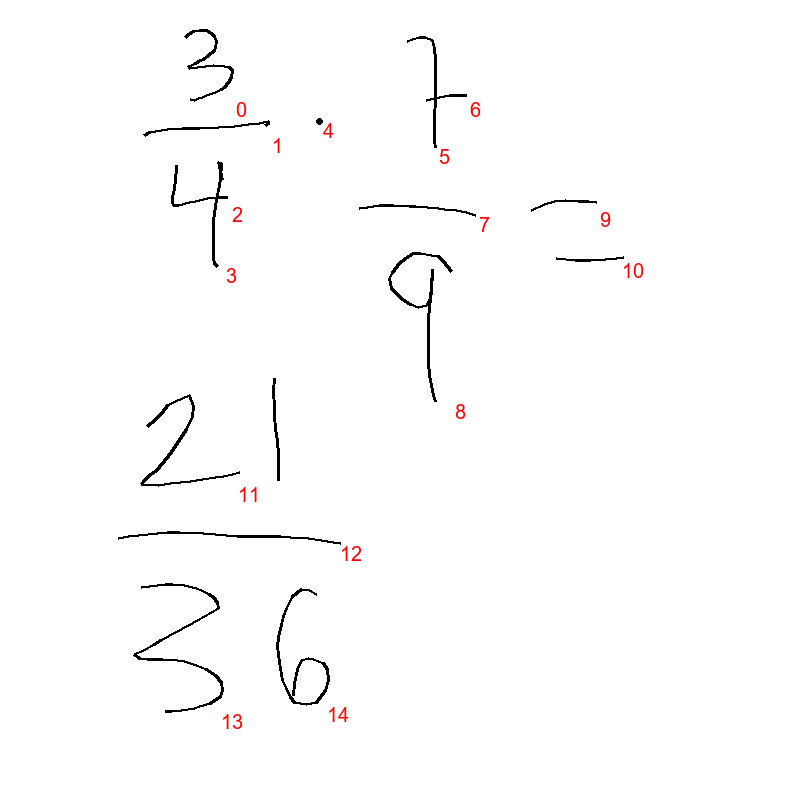 3/4 · 7/9 =
21/36
0 1 2 3 4 5 6 7 8 9 10 11 12 13 14